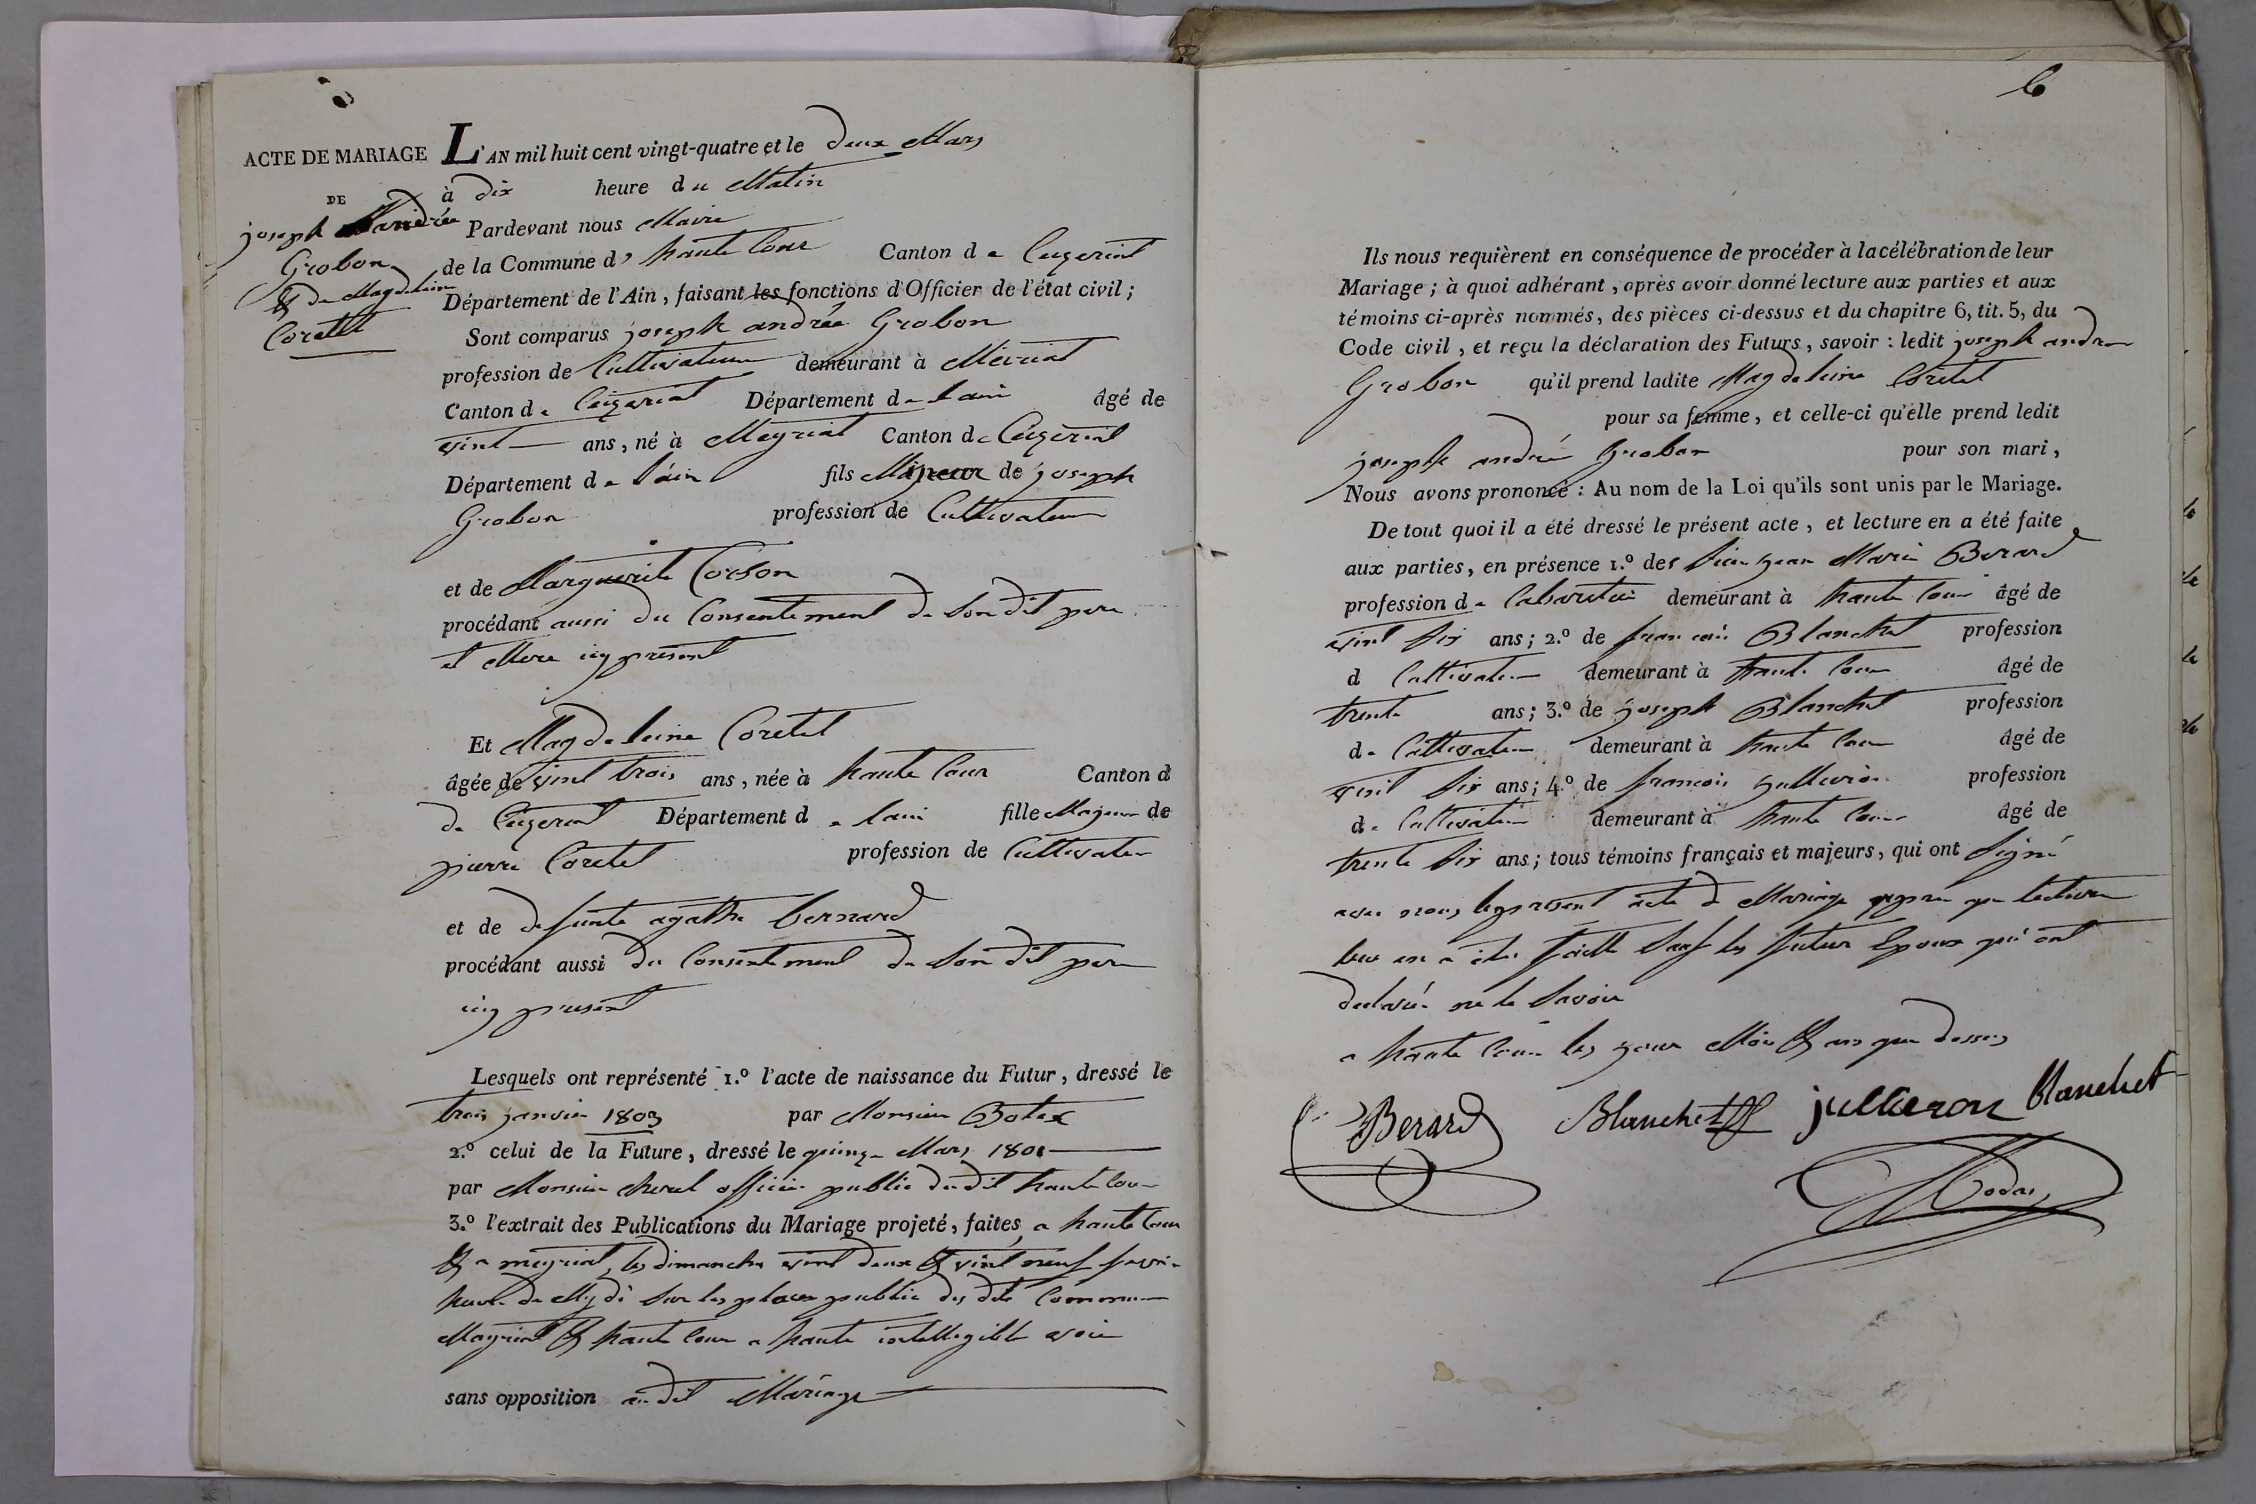 ACTE DE MARIAGE L'AN mil huit cent vingt-quatre et le deux Mars
DE à dix heure du Matin
joseph andrée Pardevant nous Maire
Grobon de la Commune d, haute Cour Canton de Ceyzeriat
& de Magdeleine Département de l'Ain, faisant les fonctions d'Officier de l'état civil;
Coretet Sont comparus joseph andrée Grobon
profession de Cultivateur demeurant à Meiriat
Canton de Ceizeriat Département de lain âgé de
vint ans, né à Meyriat Canton de Ceizeriat
Département de l'ain fils Mineur de joseph
Grobon profession de Cultivateur
et de Marguerite Corson
procédant aussi du Consentement de Son dit pere
et Mere icy présent
Et Magdeleine Coretet
âgée de vint trois ans, née à haute Cour Canton d
de Ceyzeriat Département de lain fille Majeure de
pierre Coretet profession de Cultivateur
et de defunte agathe bernard
procédant aussi du Consentement de Son dit pere
icy present
Lesquels ont représenté 1.º l'acte de naissance du Futur, dressé le
trois janvier 1803 par Monsieur Botex
2.º celui de la Future, dressé le quinze Mars 1801
par Monsieur officier public dudit haute Cour
3.º l'extrait des Publications du Mariage projeté, faites, a haute Cour
& a meyriat, les dimanche vint deux & vint neuf fevrier
heure de Mydi Sur les place public des dite Commune
Mayriat & haute Cour a haute intellegible voie
sans opposition au dit Mariage
6
Ils nous requièrent en conséquence de procéder à la célébration de leur
Mariage; à quoi adhérant, après avoir donné lecture aux parties et aux
témoins ci-après nommés, des pièces ci-dessus et du chapitre 6, tit. 5, du
Code civil, et reçu la déclaration des Futurs, savoir: ledit joseph andre
Grobon qu'il prend ladite Magdeleine Coretet
pour sa femme, et celle-ci qu'elle prend ledit
joseph andré Grobon pour son mari,
Nous avons prononcé: Au nom de la Loi qu'ils sont unis par le Mariage.
De tout quoi il a été dressé le présent acte, et lecture en a été faite
aux parties, en présence 1.º des Sieur jean Marie Berard
profession de Cabaretier demeurant à haute Cour âgé de
vint Six ans; 2.º de francois Blanchet profession
d Cultivateur demeurant à haute Cour âgé de
trente ans; 3.º de joseph Blanchet profession
de Cultivateur demeurant à haute Cour âgé de
vint Six ans; 4.º de francois jullieron profession
de Cultivateur demeurant à haute Cour âgé de
trente Six ans; tous témoins français et majeurs, qui ont Signé
avec nous le present acte de Mariage apres que lecture
leur en a été faitte Sauf les futur Epoux qui ont
declaré ne le Savoir
a haute Cour les jour Mois & an que dessus
Berard Blanchet jullieron blanchet